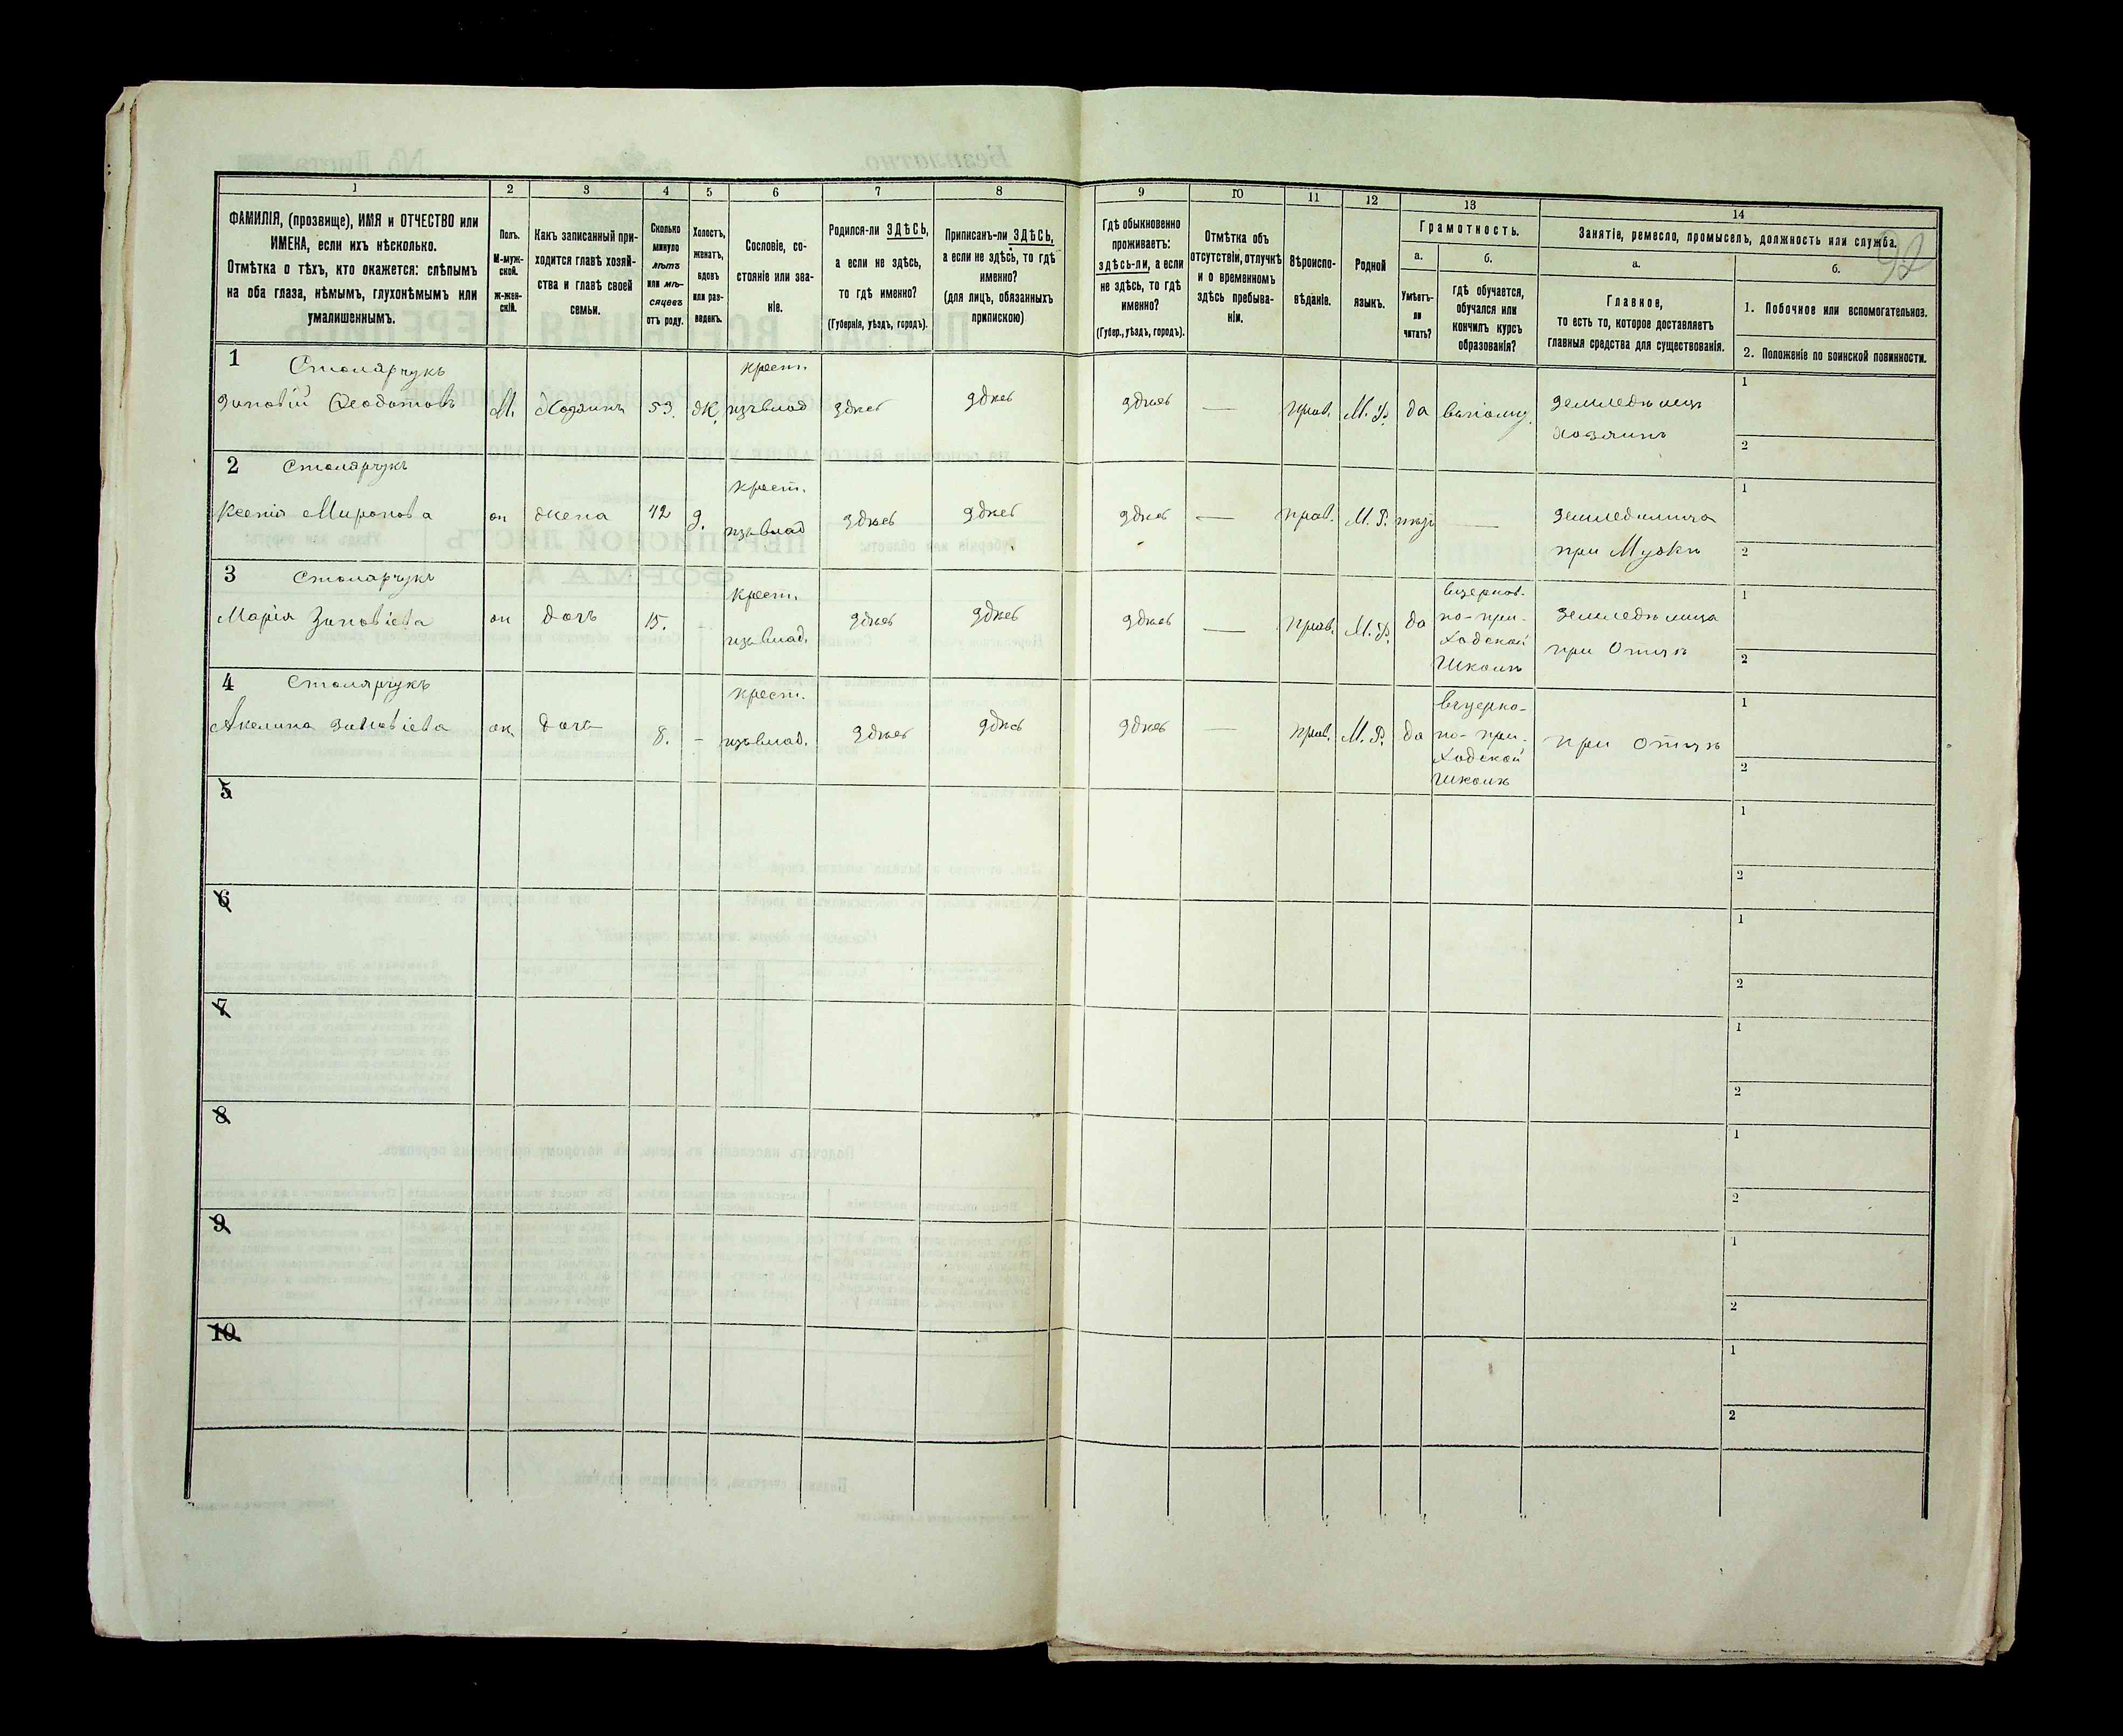 92
1 2 3 4 5 6 7 8 9 10 11 12 13 14
ФАМИЛІЯ, (прозвище), ИМЯ и ОТЧЕСТВО или
ИМЕНА, если ихъ нѣсколько.
Отмѣтка о тѣхъ, кто окажется: слѣпымъ
на оба глаза, нѣмымъ, глухонѣмымъ или
умалишеннымъ.
Полъ.
М-муж-
ской.
Ж-жен-
скій.
Какъ записанный при-
ходится главѣ хозяй-
ства и главѣ своей
семьи.
Сколько
минуло
лѣтъ
или мѣ-
сяцевъ
отъ роду.
Холостъ,
женатъ,
вдовъ
или раз-
веденъ.
Сословіе, со-
стояніе или зва-
ніе.
Родился-ли ЗДѢСЬ,
а если не здѣсь,
то гдѣ именно?
(Губернія, уѣздъ, городъ).
Приписанъ-ли ЗДѢСЬ,
а если не здѣсь, то гдѣ
именно?
(для лицъ, обязанныхъ
припискою)
Гдѣ обыкновенно
проживаетъ:
здѣсь-ли, а если
не здѣсь, то гдѣ
именно?
(Губер., уѣздъ, городъ).
Отмѣтка объ
отсутствіи, отлучкѣ
и о временномъ
здѣсь пребыва-
ніи.
Вѣроиспо-
вѣданіе.
Родной
языкъ.
Грамотность.
а.
Умѣетъ-
ли
читать?
б.
гдѣ обучается,
обучался или
кончилъ курсъ
образованія?
Занятіе, ремесло, промыселъ, должность или служба.
а.
Главное,
то есть то, которое доставляетъ
главныя средства для существованія.
б.
1. Побочное или вспомогательное.
2. Положеніе по воинской повинности.
1 Столярчукъ
крест.
Зиновій Ѳеодотовъ М. Хозяинъ 53. ж. изъ влад здѣсь здѣсь здѣсь — прав. М. Р. да земледѣлец
хозяинъ
1
2
2 Столярчукъ
крест.
Ксенія Миронова ж жена 42 з. изъ влад здѣсь здѣсь здѣсь — прав. М. Р. — земледѣлица
при Мужѣ
1
2
3 Столярчукъ
крест.
Марія Зиновіева ж дочь 15. - изъ влад. здѣсь здѣсь здѣсь — прав. М. Р. да
но-при-
ходской
школѣ
земледѣлица
при Отцѣ
1
2
4 Столярчукъ
крест.
Акелина Зиновіева ж дочь 8. - изъ влад. здѣсь здѣсь здѣсь — прав. М. Р. да
вцерко-
но-при-
ходской
школѣ
при Отцѣ
1
2
5
1
2
6
1
2
7
1
2
8
1
2
9
1
2
10
1
2